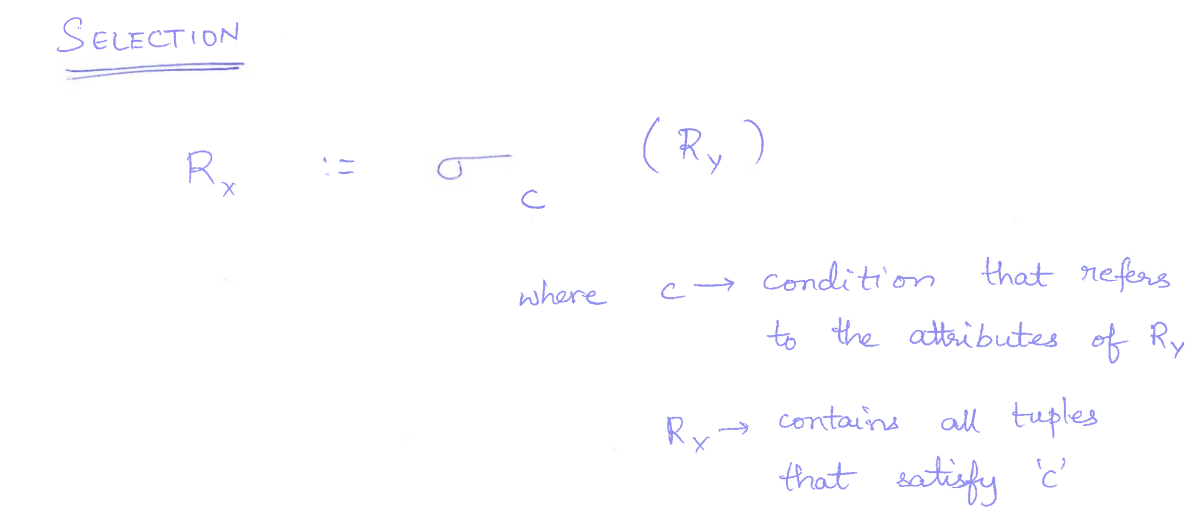 SELECTION
Rx := σc (Ry)
where c → condition that refers
to the attributes of Ry
Rx → contains all tuples
that satisfy 'c'